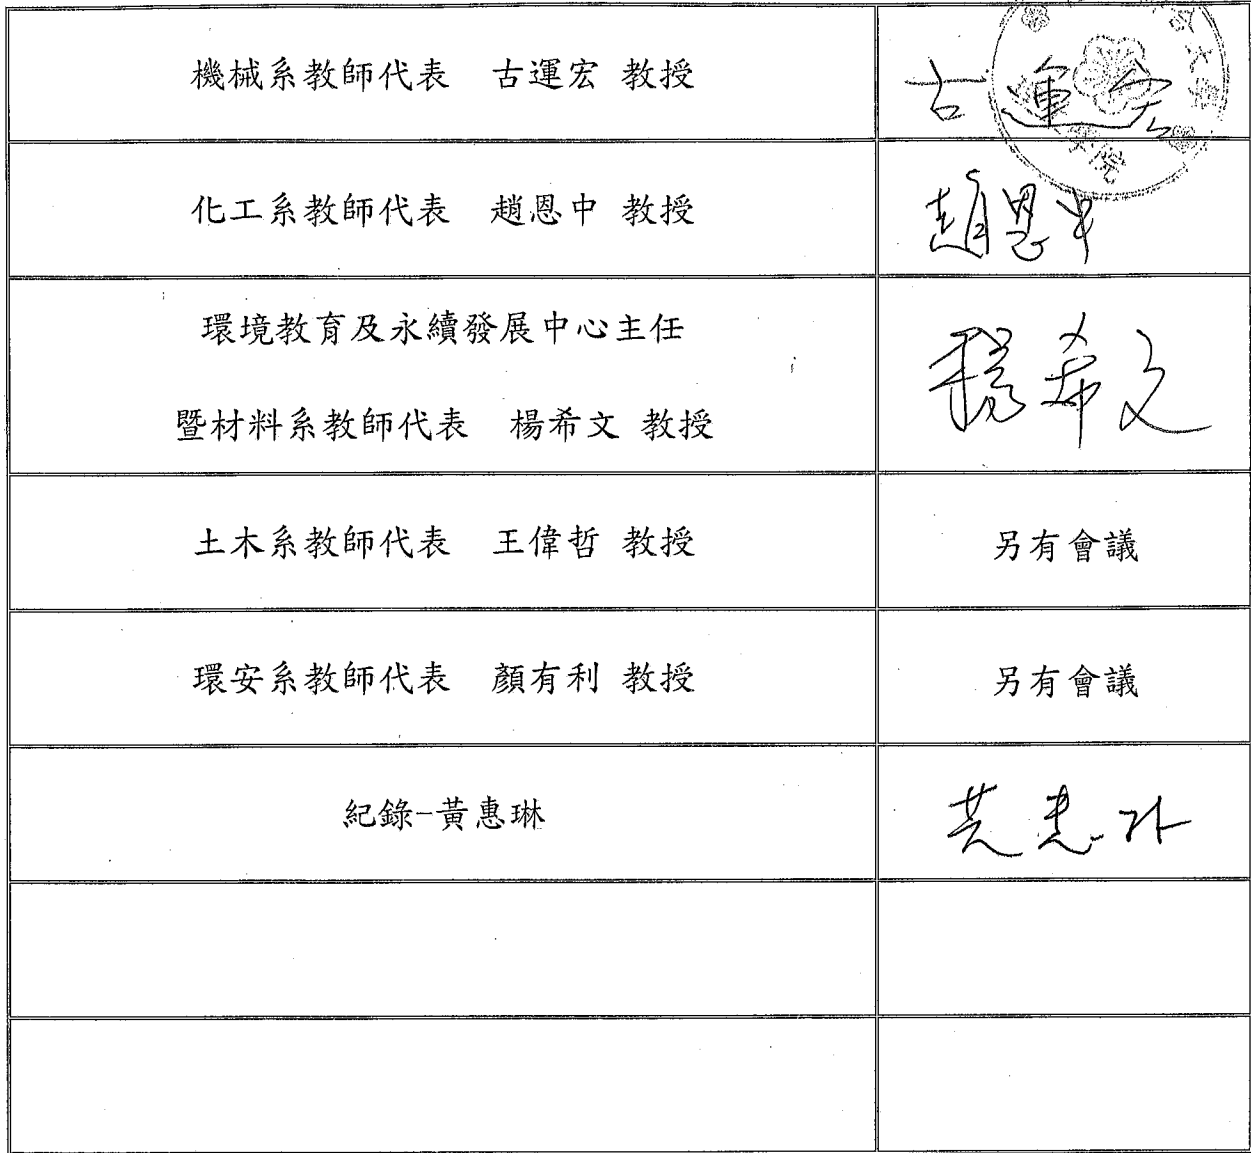 機械系教師代表 古運宏 教授
古運宏
化工系教師代表 趙恩中 教授
趙恩中
環境教育及永續發展中心主任
暨材料系教師代表 楊希文 教授
楊希文
土木系教師代表 王偉哲 教授
另有會議
環安系教師代表 顏有利 教授
另有會議
紀錄-黃惠琳
黃惠琳
大學